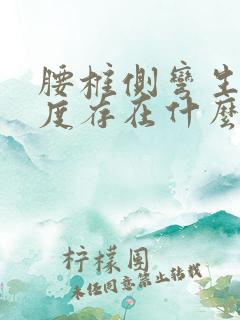 腰椎侧弯生
度存在什么
柠檬围
未经同意禁止转载